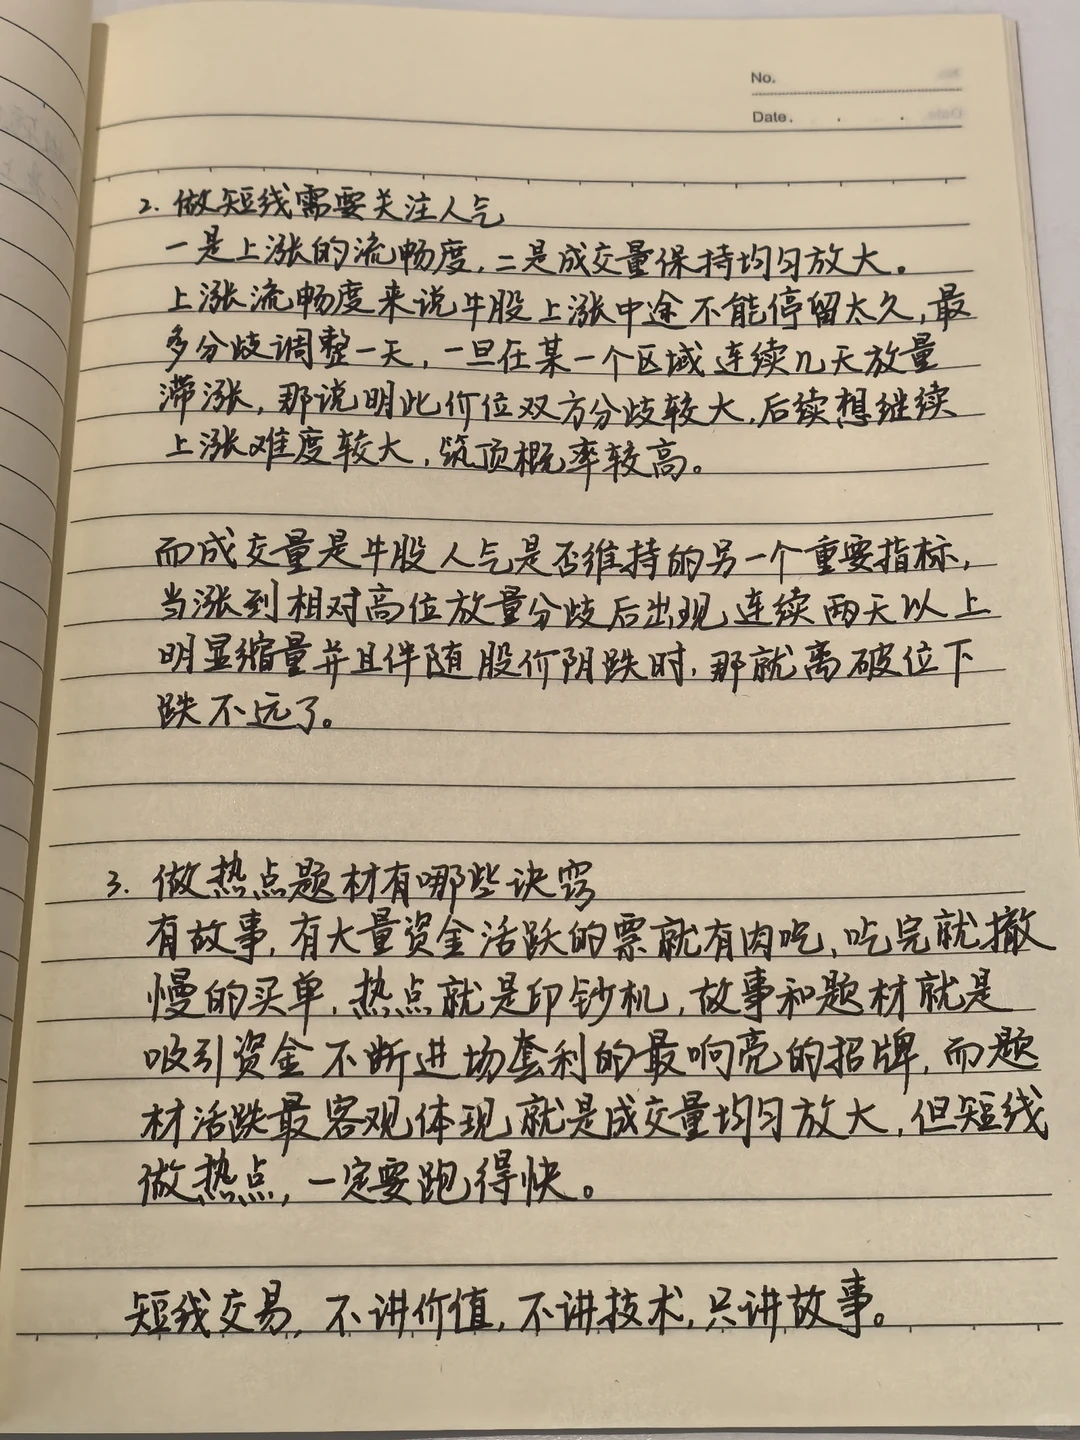 No.
Date.
2. 做短线需要关注人气
一是上涨的流畅度,二是成交量保持均匀放大。
上涨流畅度来说牛股上涨中途不能停留太久,最
多分歧调整一天,一旦在某一个区域连续几天放量
滞涨,那说明此价位双方分歧较大,后续想继续
上涨难度较大,筑顶概率较高。
而成交量是牛股人气是否维持的另一个重要指标,
当涨到相对高位放量分歧后出现连续两天以上
明显缩量并且伴随股价阴跌时,那就离破位下
跌不远了。
3. 做热点题材有哪些诀窍
有故事,有大量资金活跃的票就有肉吃,吃完就撤
慢的买单,热点就是印钞机,故事和题材就是
吸引资金不断进场套利的最响亮的招牌,而题
材活跃最客观体现就是成交量均匀放大,但短线
做热点,一定要跑得快。
短线交易,不讲价值,不讲技术,只讲故事。